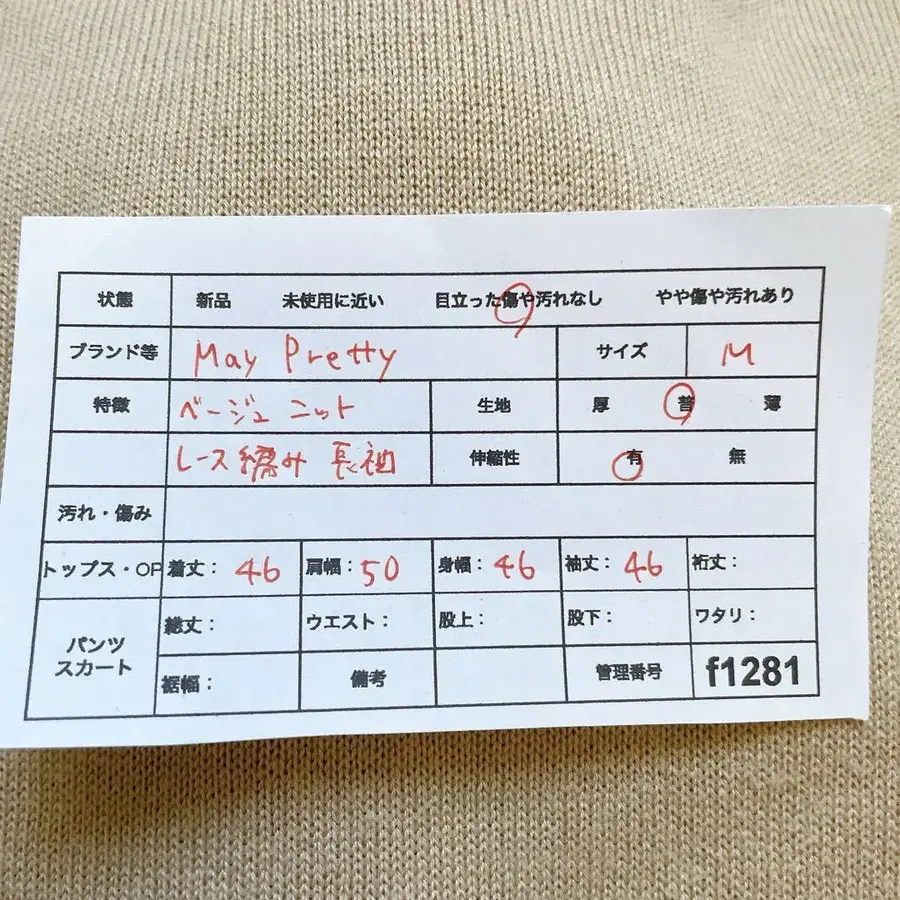 状態 新品 未使用に近い 目立った傷や汚れなし やや傷や汚れあり
ブランド等 May Pretty サイズ M
特徴 ベージュ ニット 生地 厚 普 薄
レース編み 長袖 伸縮性 有 無
汚れ・傷み
トップス・OP 着丈: 46 肩幅: 50 身幅: 46 袖丈: 46 裄丈:
パンツ スカート 総丈: ウエスト: 股上: 股下: ワタリ:
裾幅: 備考 管理番号 f1281